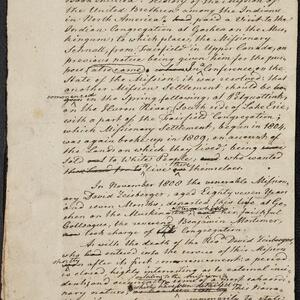 United Brethren among the Indians
in North America, paid a Visit to the
Indian Congregation at Goshen on the Mus-
kingum; to which place the Missionary
Schnall, from Fairfield in Upper Canada, on
previous notice being given him for the pur-
pose, also came. Conference, on the
State of the Mission, it was resolved: that
another Mission Settlement should be
commenced in the Spring following, at Pettquotting,
on the Huron River, South side of Lake Erie,
with a part of the Fairfield Congregation;
which Missionary Settlement, begun in 1804,
was again broken up in 1809, on account of
the Lands on which they lived, being
sold to White People, who wanted
to live themselves.
In November 1808 the venerable Mission-
ary David Zeisberger, aged Eighty seven Years
and some Months, departed this life at Go-
shen on the Muskingum; his faithful
Colleague, the Benjamin Mortimer,
took charge of Congregation.
As with the death of the Revd David Zeisberger,
who had entered into the service of the Mission
shortly after its first commencement; a period
is closed highly interesting to